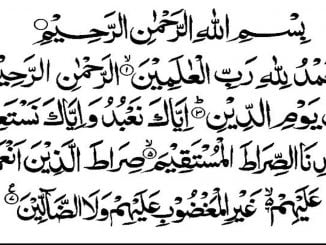 بِسْمِ اللهِ الرَّحْمٰنِ الرَّحِيْمِ ۝
مْدُ لِلّٰهِ رَبِّ الْعٰلَمِيْنَ ۝١ الرَّحْمٰنِ الرَّحِيْ
يَوْمِ الدِّيْنِ ۝٣ اِيَّاكَ نَعْبُدُ وَ اِيَّاكَ نَسْتَعِ
دِنَا الصِّرَاطَ الْمُسْتَقِيْمَ ۝٥ صِرَاطَ الَّذِيْنَ اَنْعَمْ
عَلَيْهِمْ ۝٦ غَيْرِ الْمَغْضُوْبِ عَلَيْهِمْ وَلَا الضَّآلِّيْنَ ۝٧